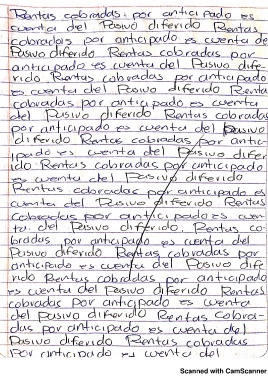 Rentas cobradas por anticipado es
cuenta del Pasivo diferido Rentas
cobradas por anticipado es cuenta de
Pasivo diferido. Rentas cobradas por
anticipado es cuenta del Pasivo dife-
rido Rentas cobradas por anticipado
es cuenta del Pasivo diferido Renta
cobradas por anticipado es cuenta
del Pasivo diferido Rentas cobradas
por anticipado es cuenta del Pasivo
diferido Rentas cobradas por antic-
ipado es cuenta del Pasivo difer
ido Rentas cobradas por anticipado
es cuenta del Pasivo diferido
Rentas cobradas por anticipado es
cuenta del Pasivo diferido Rentas
cobradas por anticipado es cuen
ta del Pasivo diferido. Rentas co-
bradas por anticipado es cuenta del
Pasivo diferido Rentas cobradas por
anticipado es cuenta del Pasivo dife
rido Rentas cobradas por anticipado
es cuenta del Pasivo diferido Rentas
cobradas por anticipado es cuenta
del Pasivo diferido Rentas Cobra-
das por anticipado es cuenta del
Pasivo diferido Rentas cobradas
por anticipado es cuenta del
Scanned with CamScanner